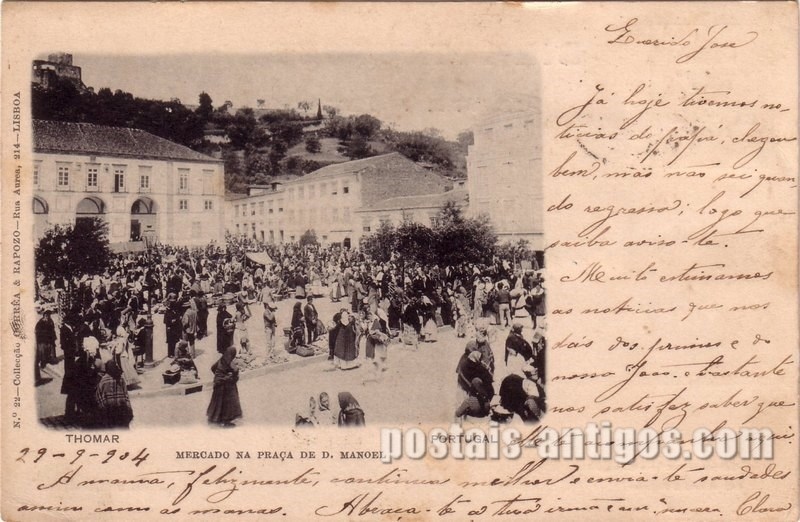 Querido José
Já hoje tivemos no-
ticias do papá, chegou
bem, mas não sei quan-
do regressa; logo que
saiba aviso-te.
Muito estimamos
as noticias que nos
dás dos primos e do
nosso João. e bastante
nos satisfaz saber que
N.º 22—Collecção CORRÊA & RAPOZO—Rua Aurea, 214—LISBOA
THOMAR
PORTUGAL
MERCADO NA PRAÇA DE D. MANOEL
postais-antigos.com
29-9-904
A mamã, felizmente, continua melhor e envia-te saudades
assim como as manas. Abraça-te a tua irmã Clara